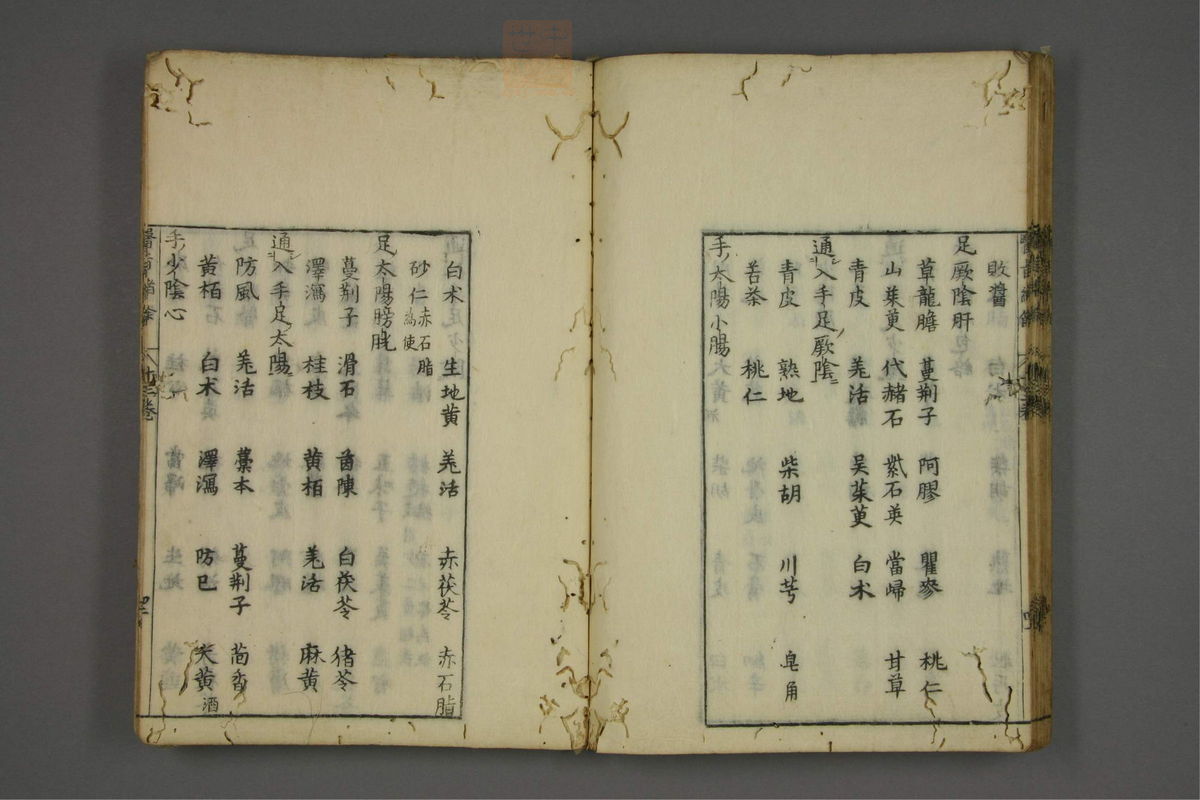 敗醬
足厥陰肝
草龍膽 蔓荊子 阿膠 瞿麥 桃仁
山茱萸 代赭石 紫石英 當歸 甘草
青皮 羌活 吴茱萸 白术
通入手足厥陰
青皮 熟地 柴胡 川芎 皂角
苦茶 桃仁
手太陽小腸
白术 生地黄 羌活 赤茯苓 赤石脂
砂仁 赤石脂為使
足太陽膀胱
蔓荊子 滑石 茵陳 白茯苓 猪苓
澤瀉 桂枝 黄栢 羌活 麻黄
通入手足太陽
防風 羌活 藁本 蔓荊子 茴香
黄栢 白术 澤瀉 防巳 大黄酒
手少陰心